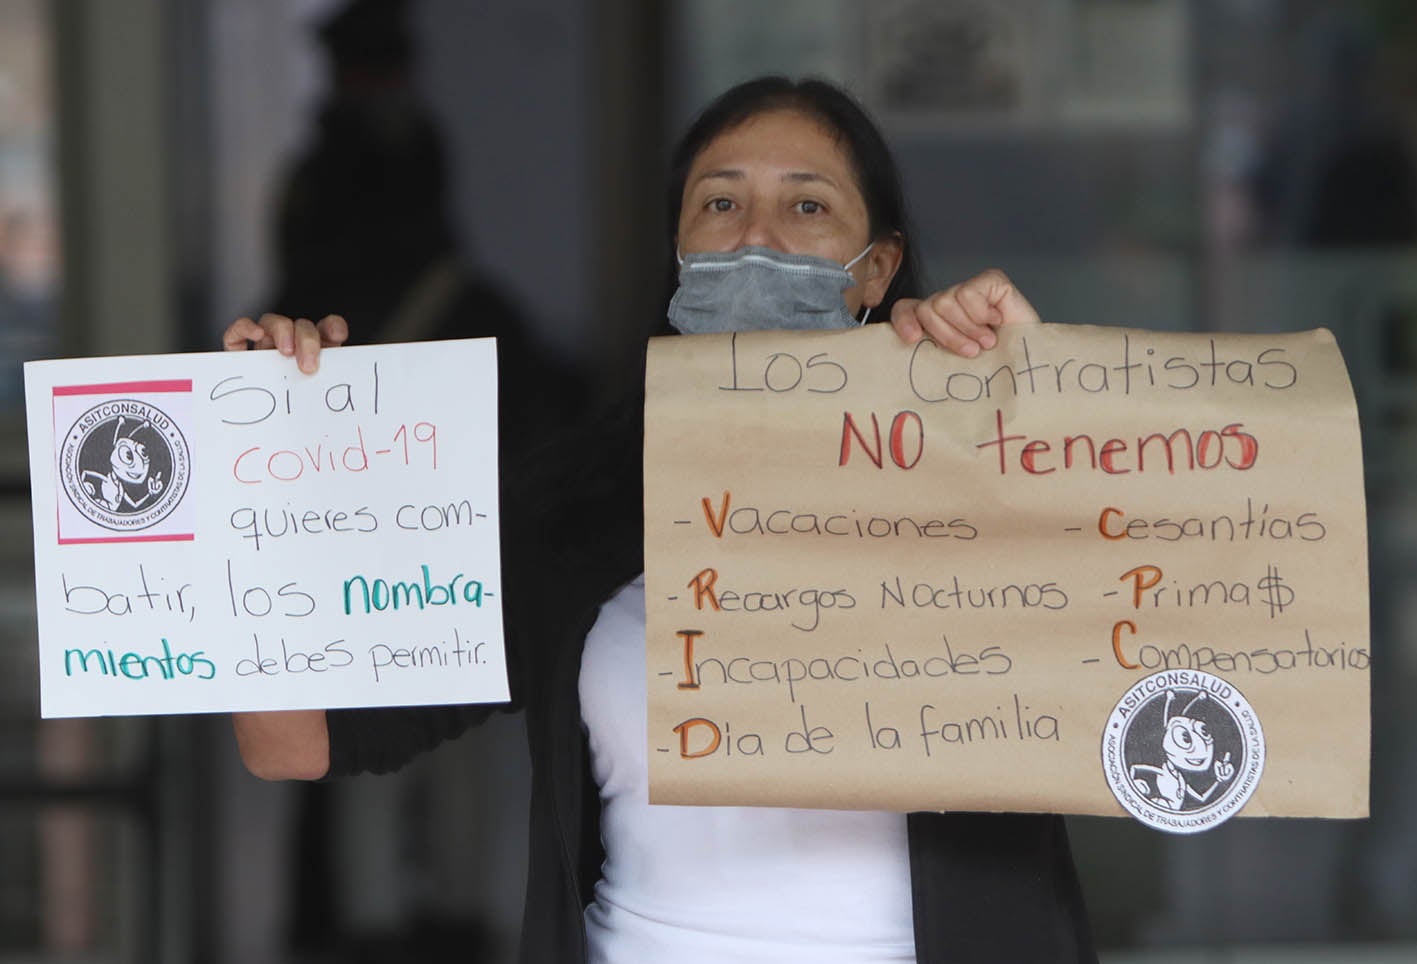 ASITCONSALUD
ASOCIACIÓN SINDICAL DE TRABAJADORES Y CONTRATISTAS DE LA SALUD
Si al
covid-19
quieres com-
batir, los nombra-
mientos debes permitir.
Los Contratistas
NO tenemos
- Vacaciones - Cesantías
- Recargos Nocturnos - Prima$
- Incapacidades - Compensatorios
- Dia de la familia
ASITCONSALUD
ASOCIACIÓN SINDICAL DE TRABAJADORES Y CONTRATISTAS DE LA SALUD